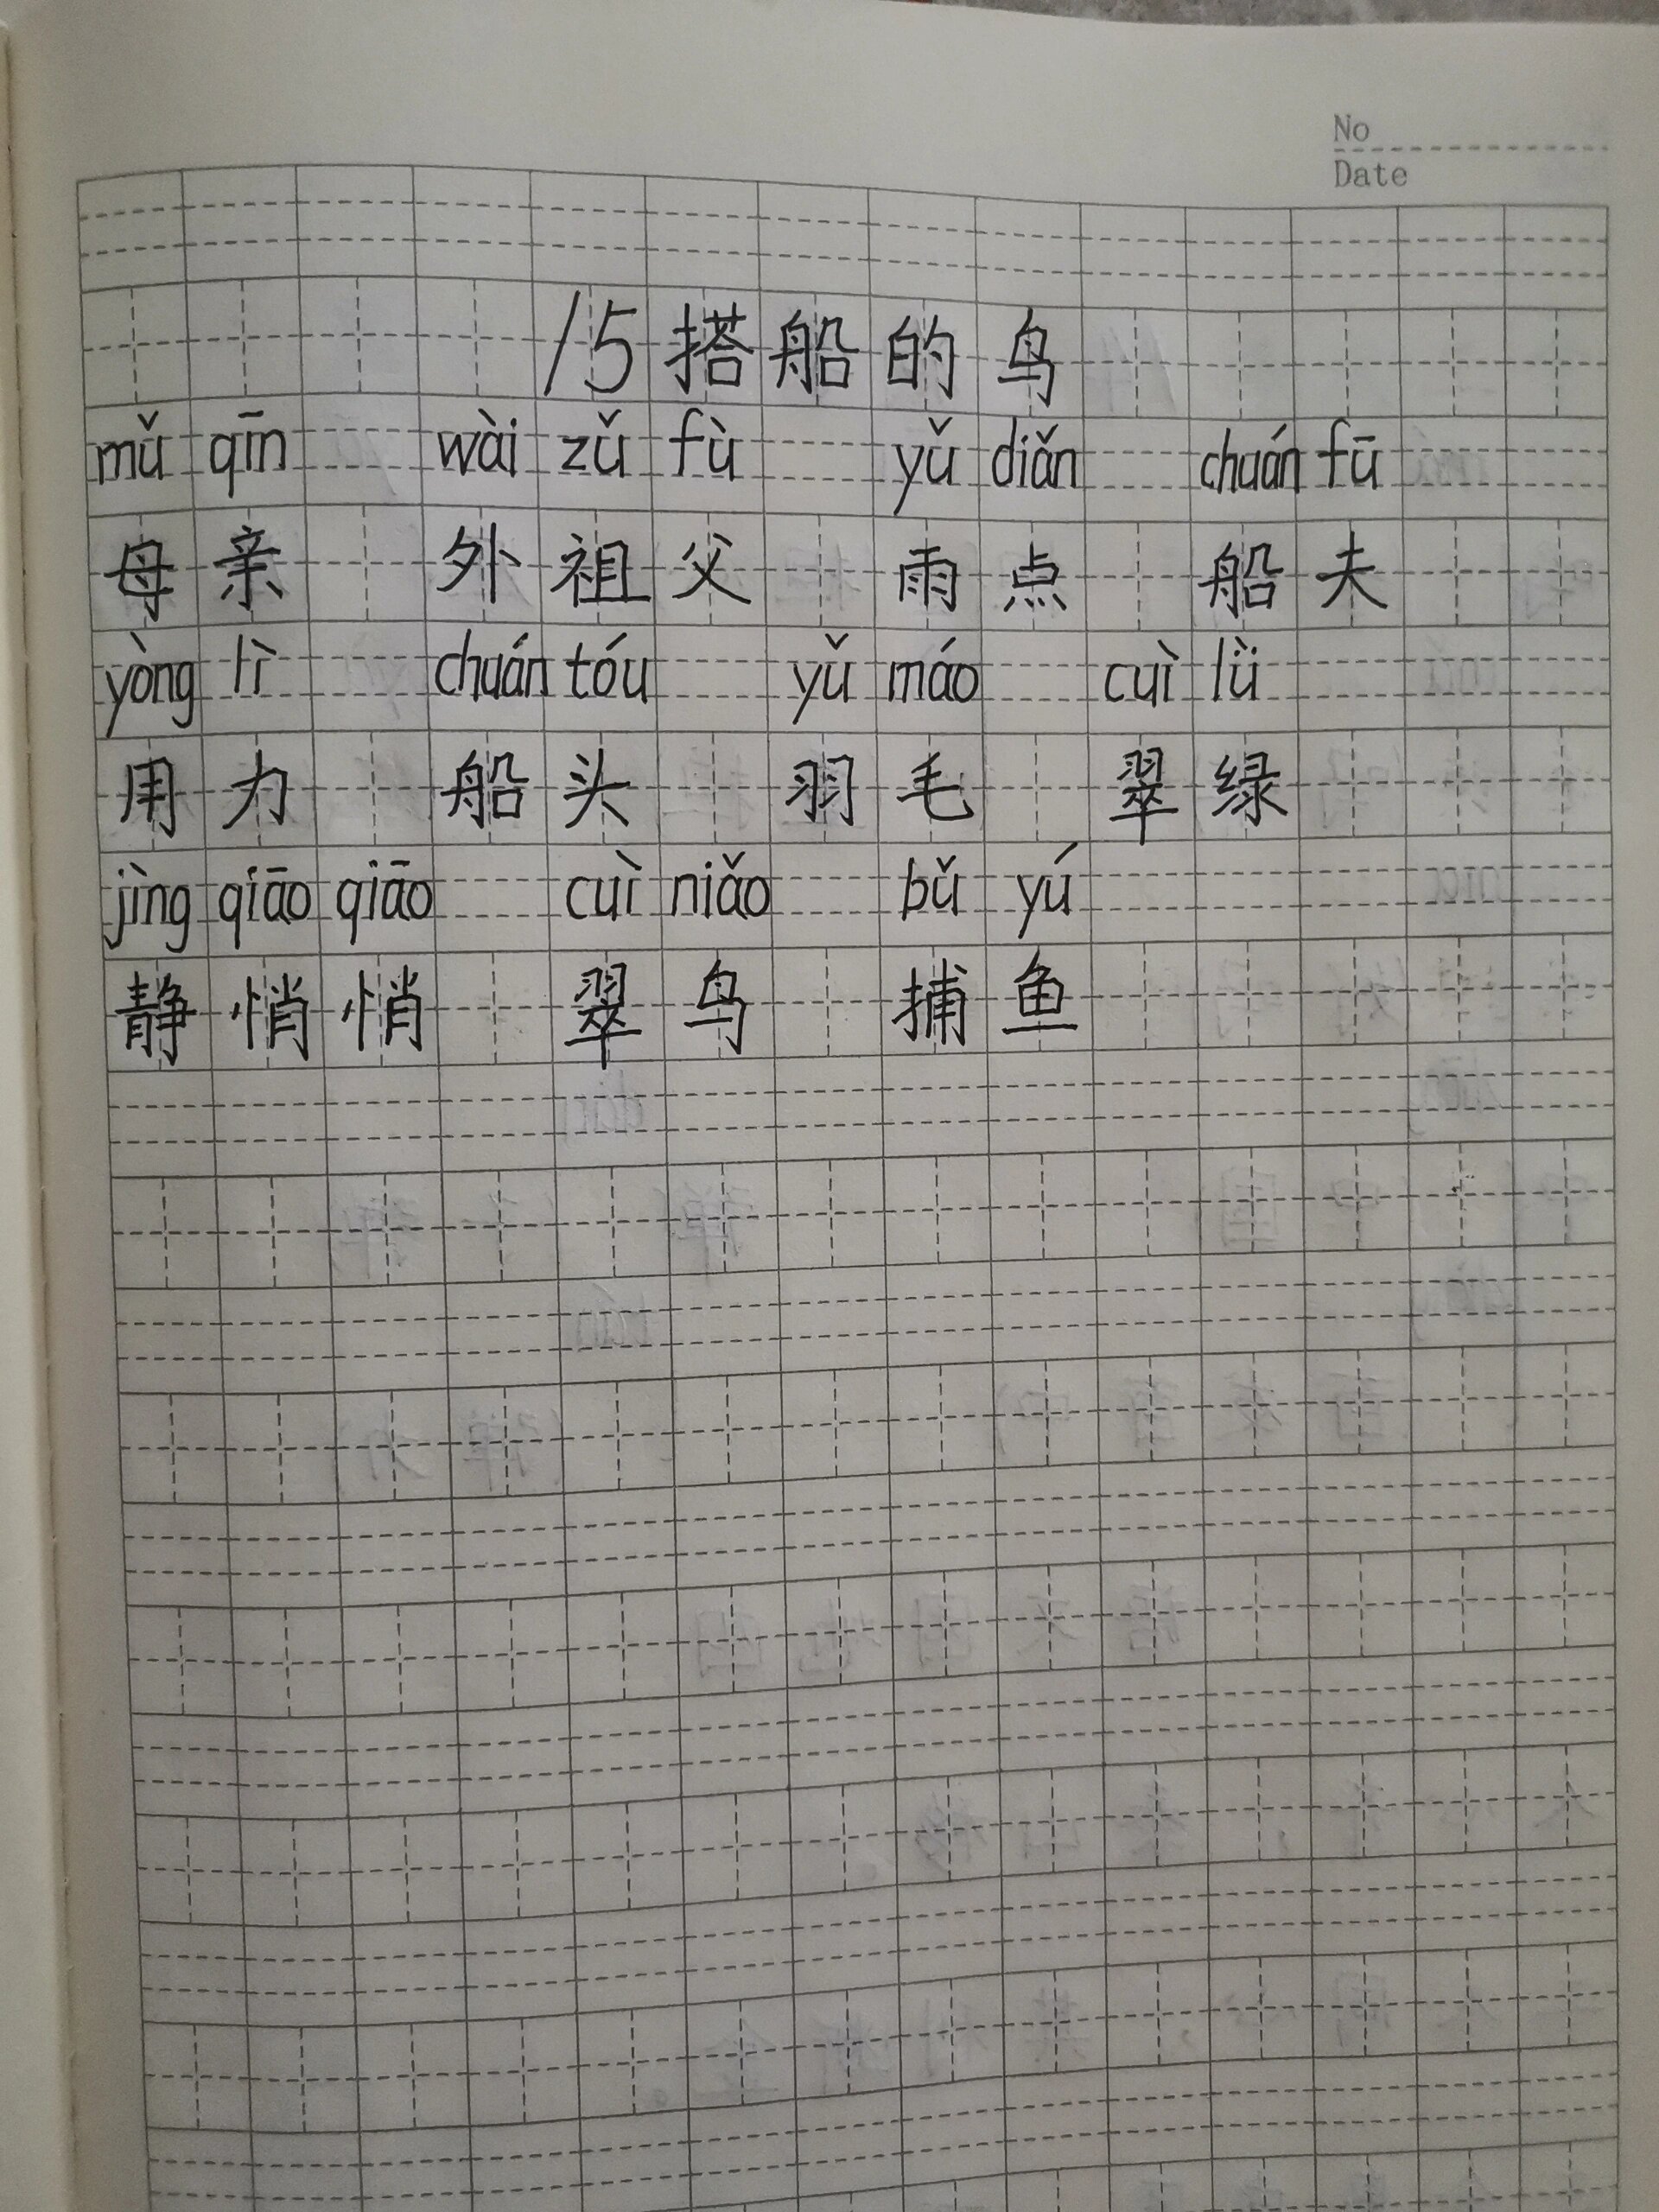 No
Date
15搭船的鸟
mǔ qīn wài zǔ fù yǔ diǎn chuán fū
母亲 外祖父 雨点 船夫
yòng lì chuán tóu yǔ máo cuì lǜ
用力 船头 羽毛 翠绿
jìng qiāo qiāo cuì niǎo bǔ yú
静悄悄 翠鸟 捕鱼